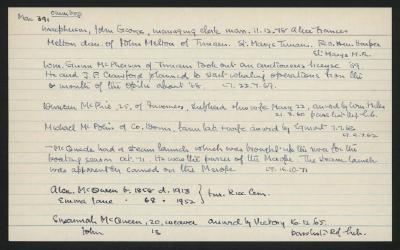 Mac 391
Omnibus
Macpherson, John George, managing clerk marr. 11.12.78 Alice Frances
Melton dau. of John Melton of Timaru. St. Marys Timaru.
St Marys M.R.
Wm. Gunn McPherson of Timaru took out an auctioneers license '69.
He and J. E. Crawford planned to start whaling operations from the
mouth of the Opihi about '68. CT. 22.7.69.
Duncan McPhie, 25, of Inverness, shepherd also wife Mary 22, arrived by Wm Miles
21.8.60
Michael McPolin of Co. Down, farm lab. & wife arrived by Egmont 7.7.63
— McQuade had a steam launch which was brought up the river for the
boating season at '71. He was the purser of the Maori. The steam launch
was apparently carried on the Maori LT. 16.10.71
Alex. McQueen b. 1858 d. 1913
Emma Jane " 68 " 1952
Susannah McQueen, 20, weaver arrived by Victory 16.12.65.
John 13